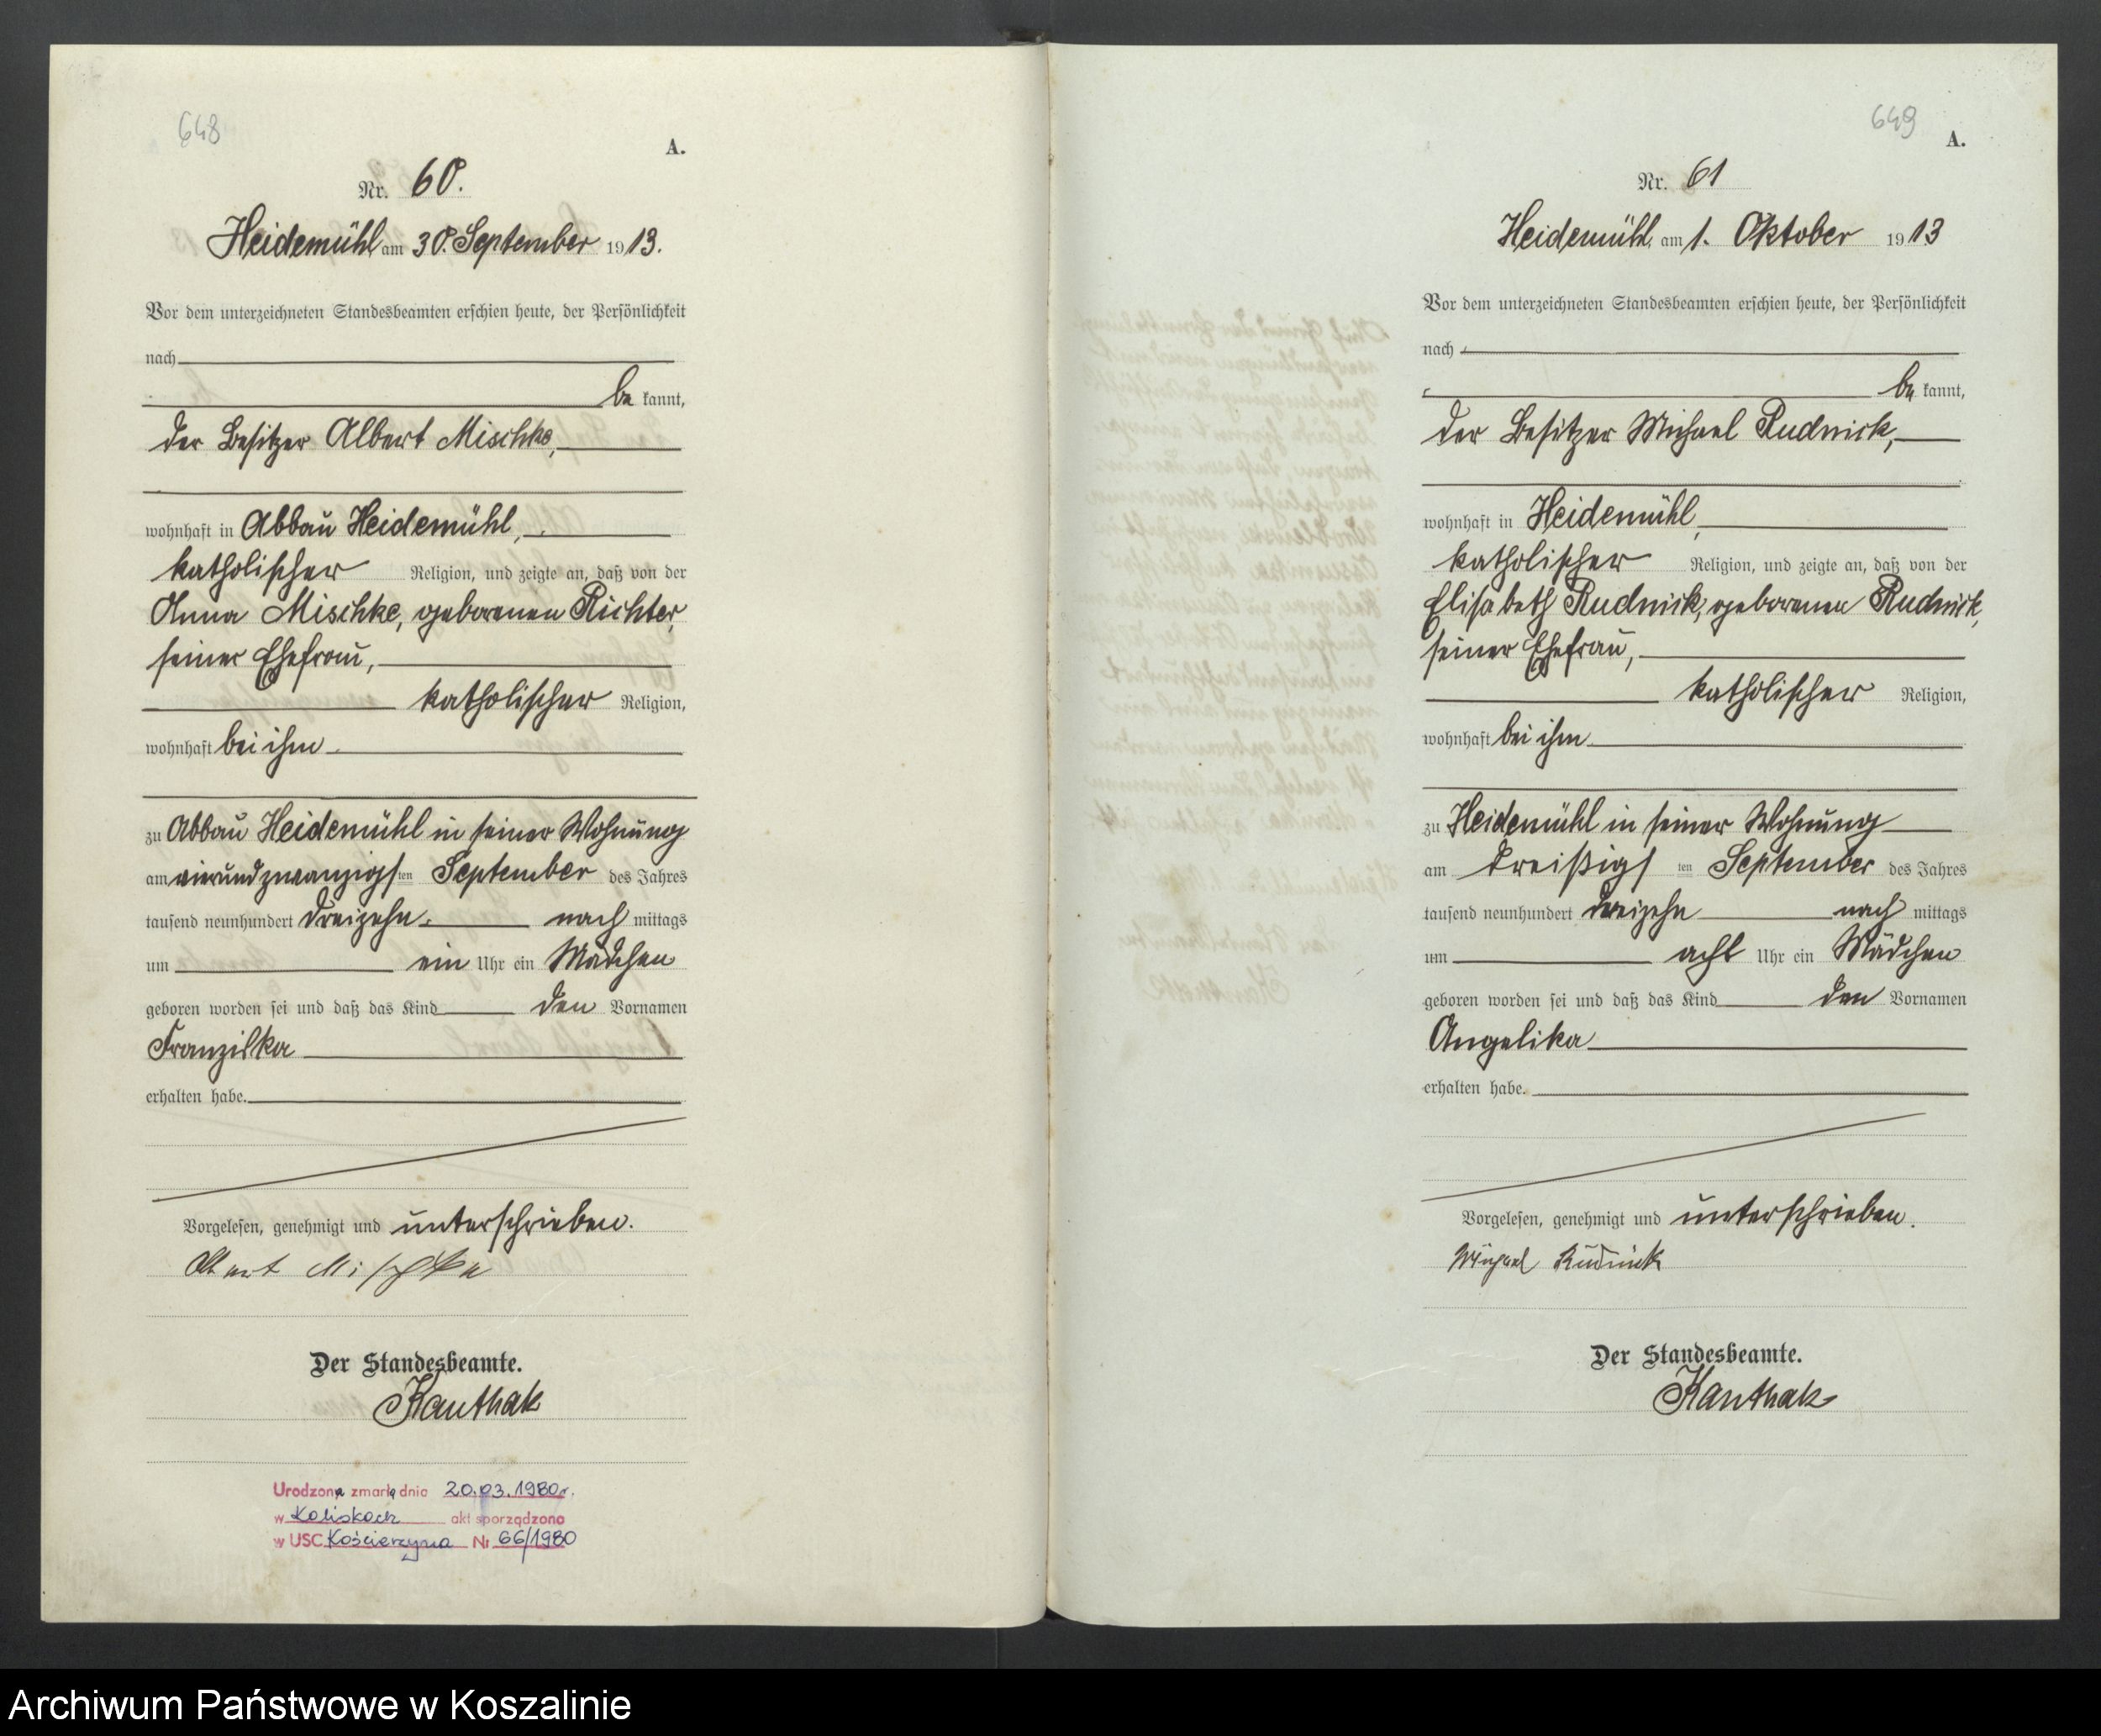 648
A.
Nr. 60.
Heidemühl am 30. September 1913.
Vor dem unterzeichneten Standesbeamten erschien heute, der Persönlichkeit
nach
be kannt,
der Besitzer Albert Mischke,
wohnhaft in Abbau Heidemühl,
katholischer Religion, und zeigte an, daß von der
Anna Mischke, geborenen Richter,
seiner Ehefrau,
katholischer Religion,
wohnhaft bei ihm
zu Abbau Heidemühl in seiner Wohnung
am vierundzwanzigsten September des Jahres
tausend neunhundert dreizehn nach mittags
um ein Uhr ein Mädchen
geboren worden sei und daß das Kind den Vornamen
Franziska
erhalten habe.
Vorgelesen, genehmigt und unterschrieben.
Albert Mischke
Der Standesbeamte.
Kanthak
Urodzona zmarła dnia 20.03.1980r.
w Kaliskach akt sporządzono
w USC Kościerzyna Nr 66/1980
649
A.
Nr. 61
Heidemühl, am 1. Oktober 1913
Vor dem unterzeichneten Standesbeamten erschien heute, der Persönlichkeit
nach
be kannt,
der Besitzer Michael Rudnick,
wohnhaft in Heidemühl,
katholischer Religion, und zeigte an, daß von der
Elisabeth Rudnick, geborenen Rudnick,
seiner Ehefrau,
katholischer Religion,
wohnhaft bei ihm
zu Heidemühl in seiner Wohnung
am dreißigsten September des Jahres
tausend neunhundert dreizehn nach mittags
um acht Uhr ein Mädchen
geboren worden sei und daß das Kind den Vornamen
Angelika
erhalten habe.
Vorgelesen, genehmigt und unterschrieben.
Michael Rudnick
Der Standesbeamte.
Kanthak
Archiwum Państwowe w Koszalinie